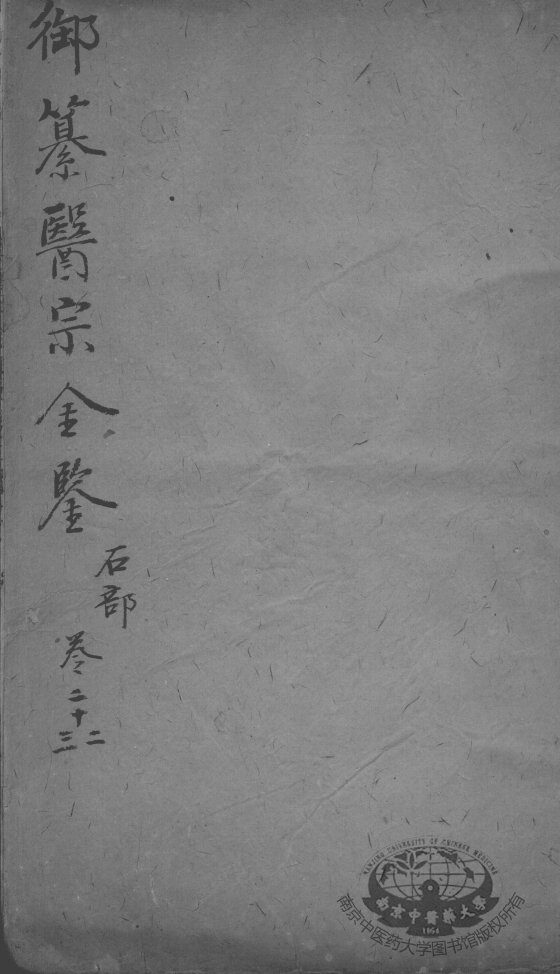 御纂醫宗金鑒
石部
卷二十二三
NANJING UNIVERSITY OF CHINESE MEDICINE
南京中醫藥大學
1954
南京中医药大学图书馆版权所有